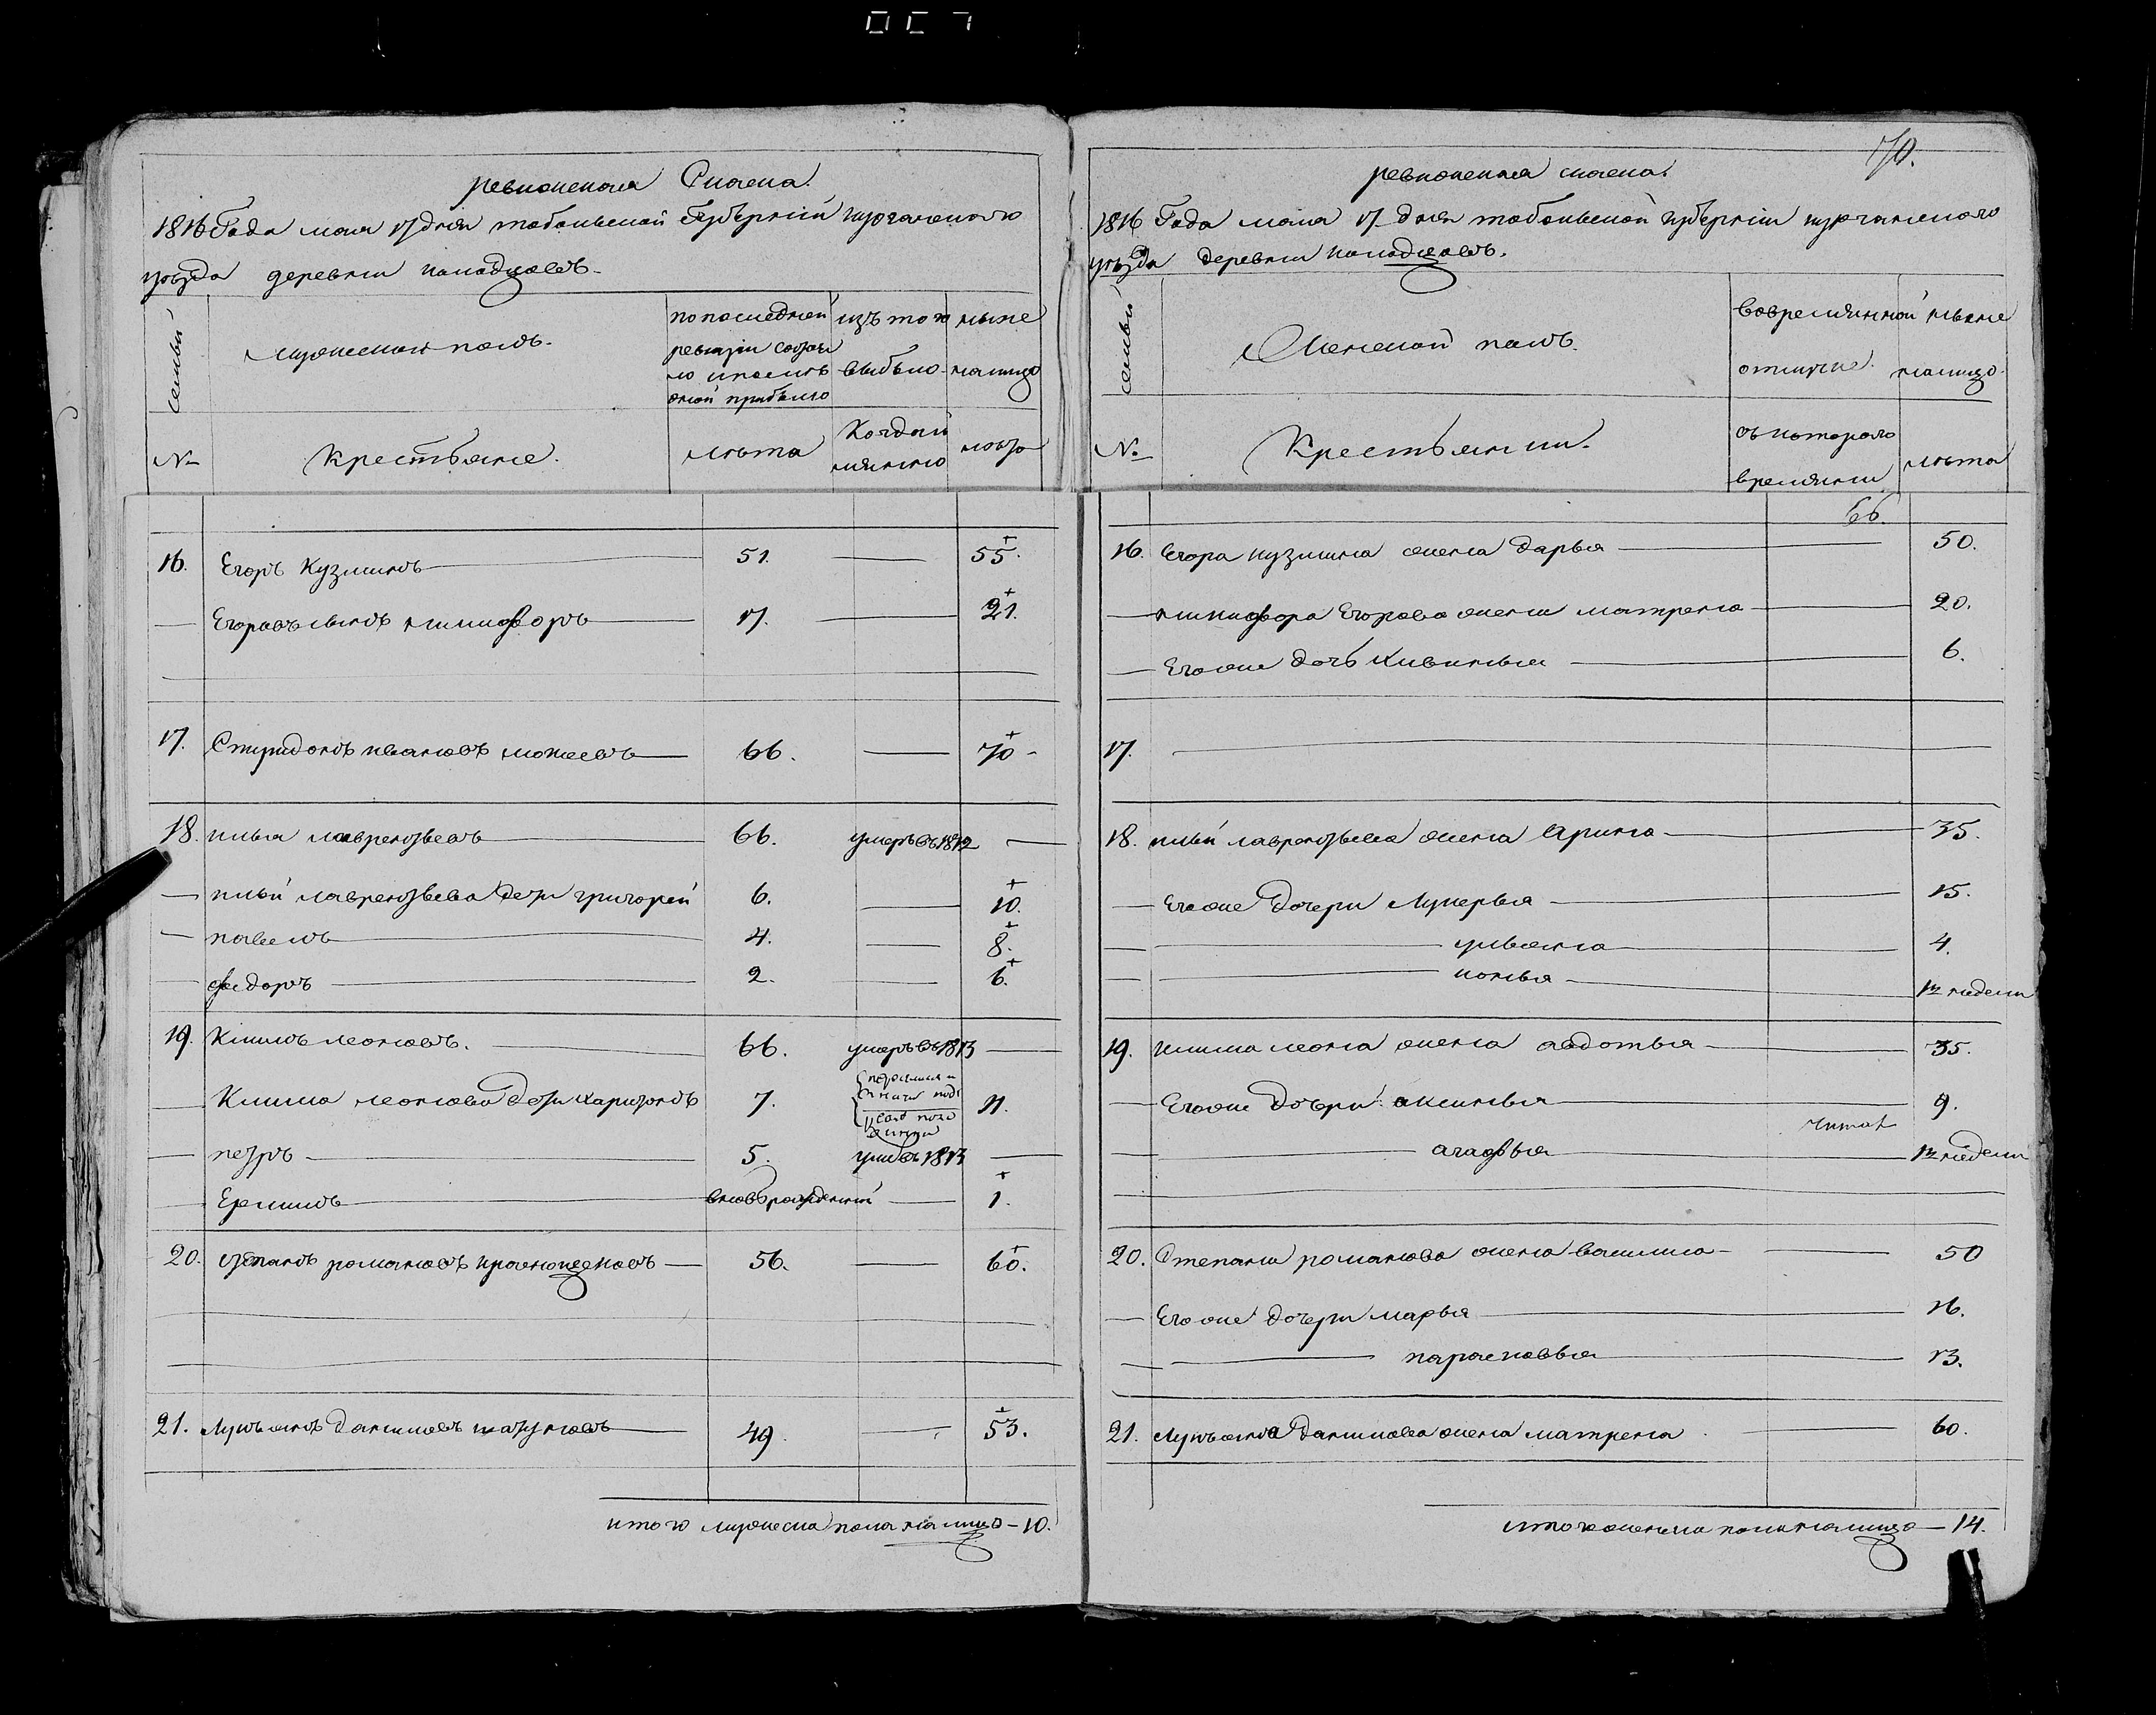 70.
ревизская Сказка.
1816 Года мая 17 дня тобольской Губернии курганского
уѣзда деревни колодцовъ.
семьи
мужеской полъ.
по последней
ревизіи состоя
ло и после
оной прибыло
изъ того
выбыло
ныне
налицо
№
Крестьяне.
лѣта
Когда и
лѣта
16. Егоръ Кузминъ 51. 55.
Егоровъ сынъ никифоръ 17. 21.
17. Спиридонъ ивановъ 66. 70
18. илья лаврентьевъ 66. умеръ въ 1812
ильи лаврентьева дети григорей 6. 10.
павелъ 4. 8.
федоръ 2. 6.
19. Климъ леоновъ. 66. умеръ въ 1813
Клима леонова дети харитонъ 7. 11.
петръ 5. умеръ 1813
Еремимъ вновь рожденный 1.
20. степанъ романовъ 56. 60.
21. Лукъянъ даниловъ 49. 53.
итого мужеска пола налицо – 10.
ревизская сказка.
1816 Года мая 17 дня тобольской губернии курганского
уѣзда деревни колодцовъ.
семьи
Женской полъ.
во временной
отлучке.
ныне
налицо.
№
Крестьянки.
съ котораго
времяни
лѣта
66.
16. Егора кузмина жена дарья 50.
никифора Егорова жена матрена 20.
Его же дочь 6.
17.
18. ильи лаврентьева жена Арина 35.
Его же дочери Лукерья 15.
ульяна 4.
1 недели
19. клима леона жена авдотья 35.
Его же дочери аксинья 9.
агафья 1 недели
20. Степана романова жена василиса 50
Его же дочери марья 16.
парасковья 13.
21. Лукъяна данилова жена матрена 60.
итого женска пола налицо – 14.